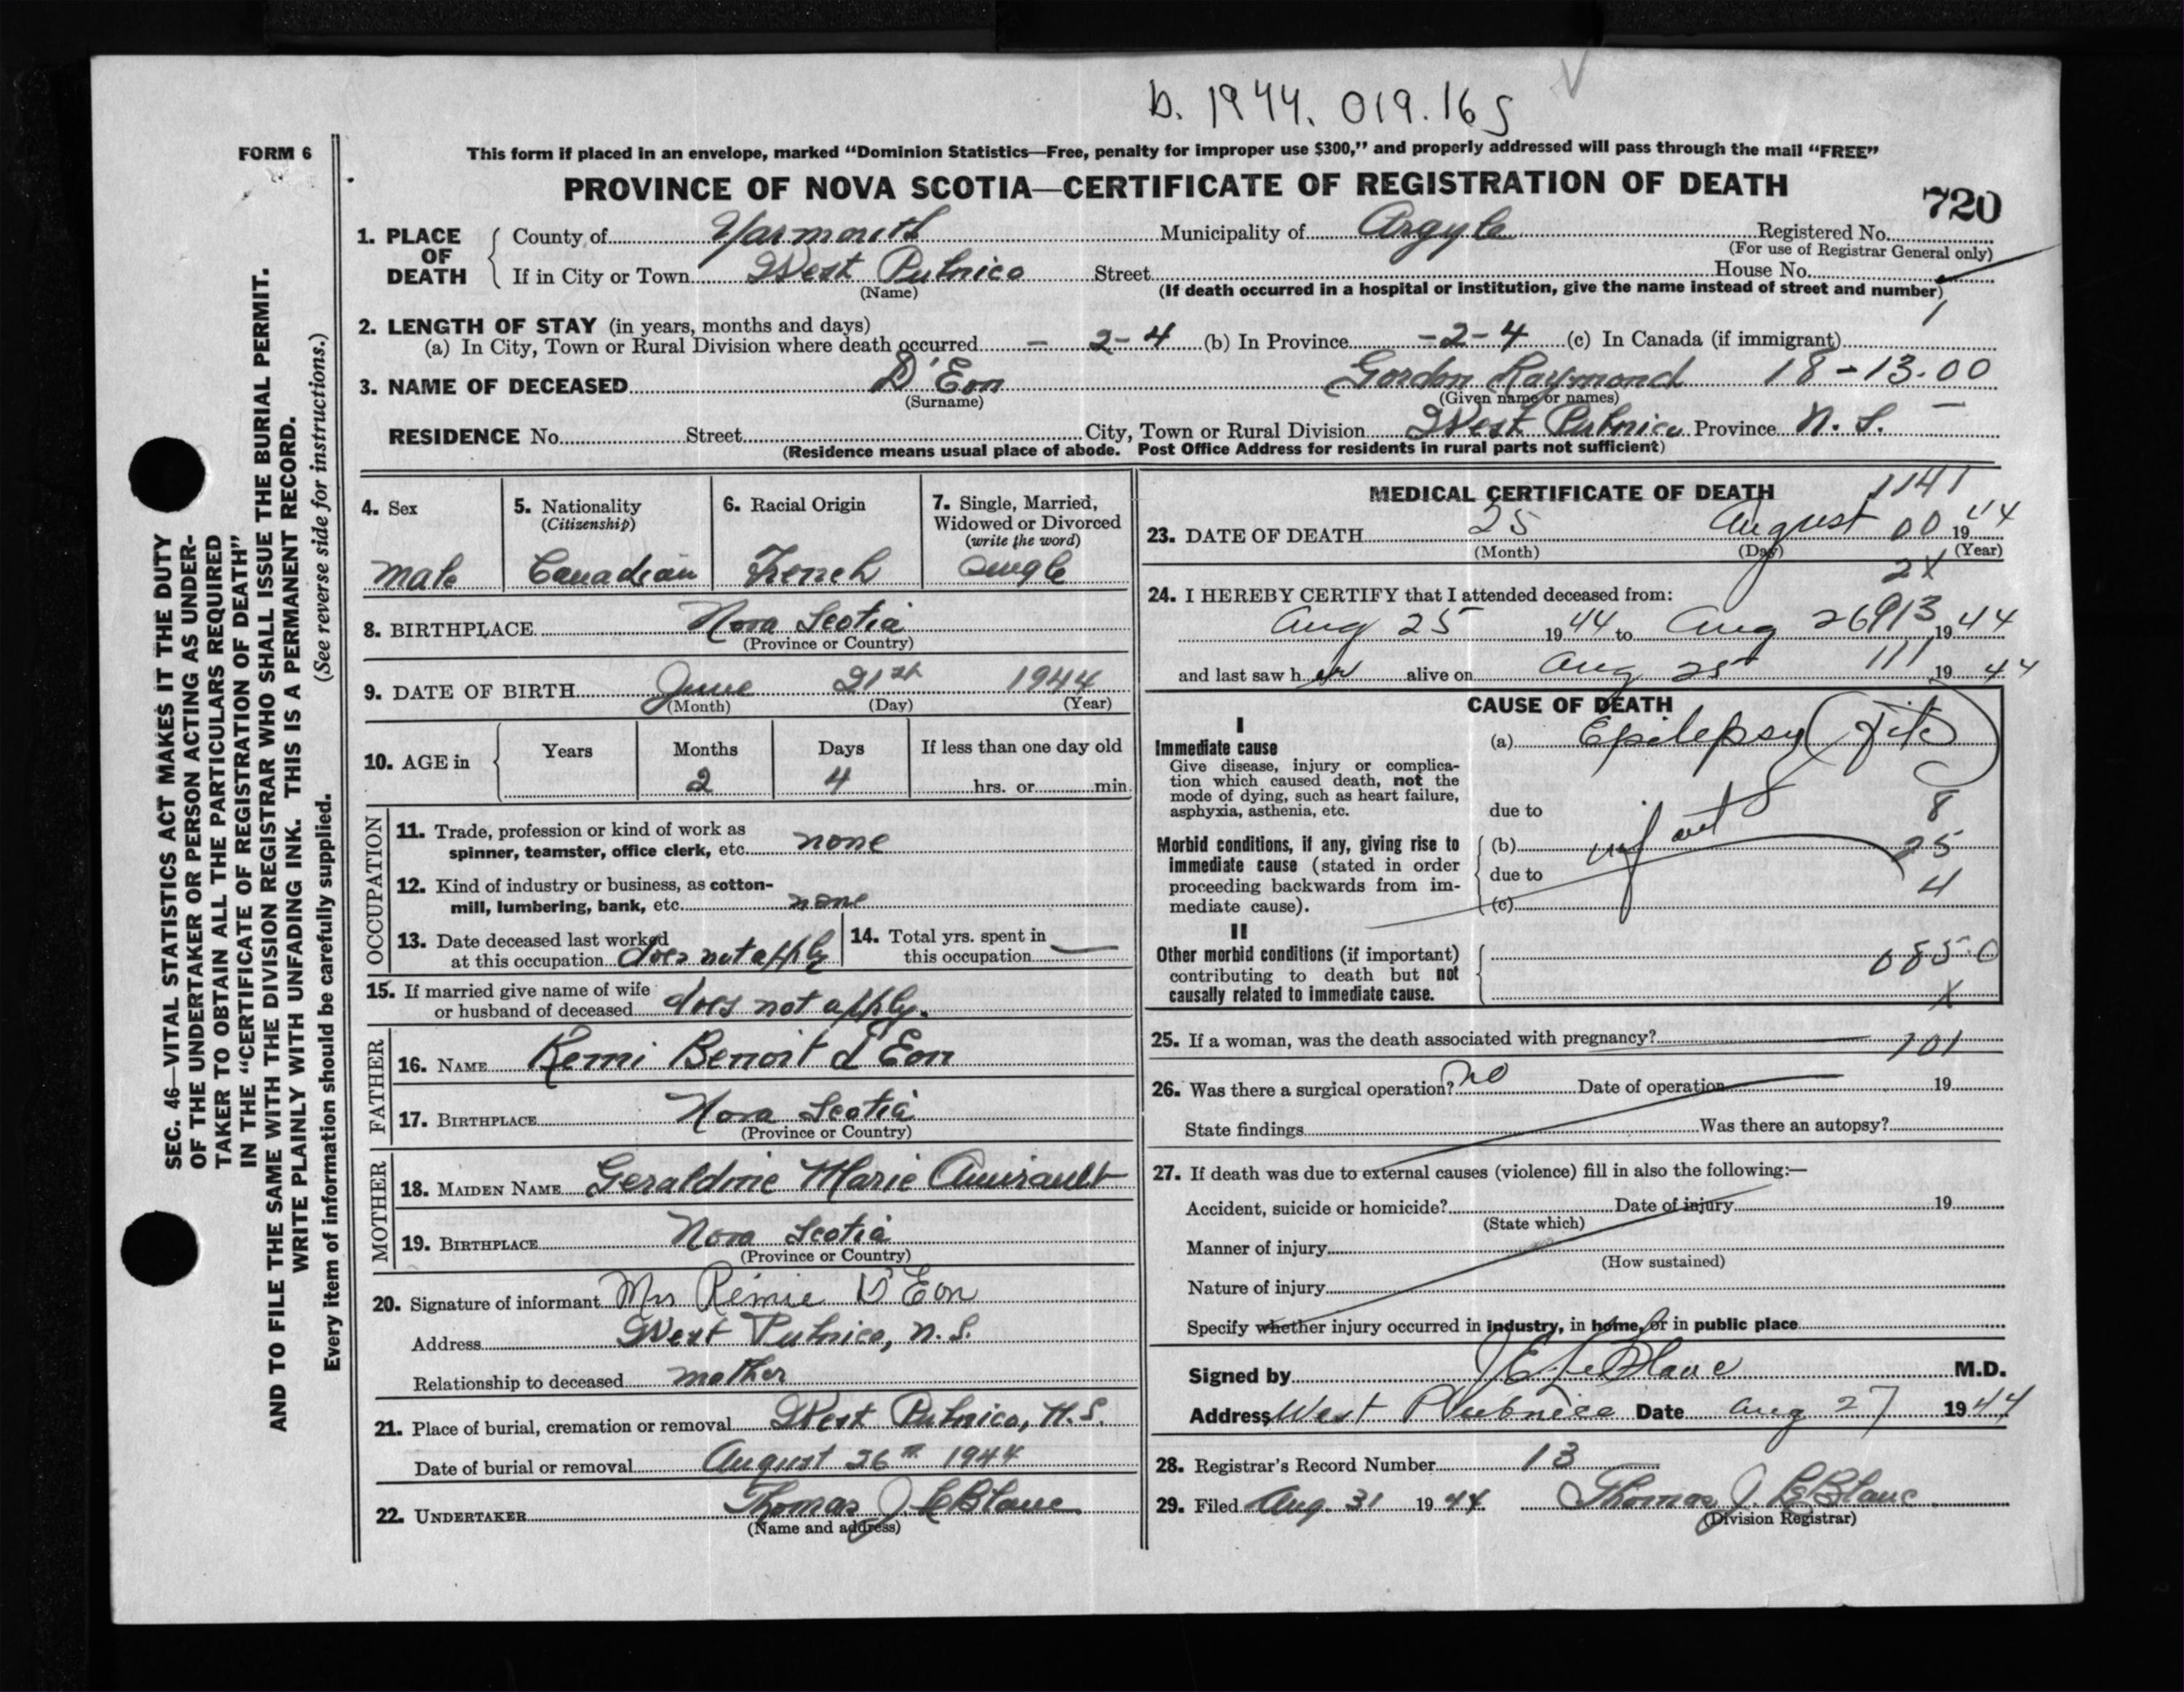 b. 1944. 019.165
FORM 6
This form if placed in an envelope, marked “Dominion Statistics—Free, penalty for improper use $300,” and properly addressed will pass through the mail “FREE”
PROVINCE OF NOVA SCOTIA—CERTIFICATE OF REGISTRATION OF DEATH
720
1. PLACE OF DEATH
County of Yarmouth Municipality of Argyle Registered No.
(For use of Registrar General only)
If in City or Town West Pubnico Street House No.
(Name) (If death occurred in a hospital or institution, give the name instead of street and number)
2. LENGTH OF STAY (in years, months and days)
(a) In City, Town or Rural Division where death occurred - 2-4 (b) In Province -2-4 (c) In Canada (if immigrant)
3. NAME OF DECEASED D'Eon Gordon Raymond 18-13-00
(Surname) (Given name or names)
RESIDENCE No. Street City, Town or Rural Division West Pubnico Province N. S.
(Residence means usual place of abode. Post Office Address for residents in rural parts not sufficient)
4. Sex
male
5. Nationality
(Citizenship)
Canadian
6. Racial Origin
French
7. Single, Married,
Widowed or Divorced
(write the word)
Single
8. BIRTHPLACE Nova Scotia
(Province or Country)
9. DATE OF BIRTH June 21th 1944
(Month) (Day) (Year)
10. AGE in Years Months Days If less than one day old
2 4 hrs. or min.
OCCUPATION
11. Trade, profession or kind of work as
spinner, teamster, office clerk, etc. none
12. Kind of industry or business, as cotton-
mill, lumbering, bank, etc. none
13. Date deceased last worked
at this occupation does not apply
14. Total yrs. spent in
this occupation —
15. If married give name of wife
or husband of deceased does not apply.
FATHER
16. NAME Remi Benoit d'Eon
17. BIRTHPLACE Nova Scotia
(Province or Country)
MOTHER
18. MAIDEN NAME Geraldine Marie Amirault
19. BIRTHPLACE Nova Scotia
(Province or Country)
20. Signature of informant Mrs Rémie D'Eon
Address West Pubnico, N.S.
Relationship to deceased mother
21. Place of burial, cremation or removal West Pubnico, N.S.
Date of burial or removal August 26th 1944
22. UNDERTAKER Thomas J. LeBlanc
(Name and address)
MEDICAL CERTIFICATE OF DEATH
1141
23. DATE OF DEATH 25 August 00 1944
(Month) (Day) (Year)
2X
24. I HEREBY CERTIFY that I attended deceased from:
Aug 25 1944 to Aug 26 913 1944
and last saw h alive on Aug 25 111 1944
CAUSE OF DEATH
I
Immediate cause
Give disease, injury or complica-
tion which caused death, not the
mode of dying, such as heart failure,
asphyxia, asthenia, etc.
(a) Epilepsy (Fits)
due to 8
Morbid conditions, if any, giving rise to
immediate cause (stated in order
proceeding backwards from im-
mediate cause).
(b) 25
due to 4
(c)
II
Other morbid conditions (if important)
contributing to death but not
causally related to immediate cause.
085.0
X
25. If a woman, was the death associated with pregnancy? 101
26. Was there a surgical operation? no Date of operation 19
State findings Was there an autopsy?
27. If death was due to external causes (violence) fill in also the following:—
Accident, suicide or homicide? Date of injury 19
(State which)
Manner of injury
(How sustained)
Nature of injury
Specify whether injury occurred in industry, in home, or in public place
Signed by J E LeBlanc M.D.
Address West Pubnico Date Aug 27 1944
28. Registrar's Record Number 13
29. Filed Aug. 31 1944 Thomas J. LeBlanc
(Division Registrar)
SEC. 46—VITAL STATISTICS ACT MAKES IT THE DUTY
OF THE UNDERTAKER OR PERSON ACTING AS UNDER-
TAKER TO OBTAIN ALL THE PARTICULARS REQUIRED
IN THE “CERTIFICATE OF REGISTRATION OF DEATH”
AND TO FILE THE SAME WITH THE DIVISION REGISTRAR WHO SHALL ISSUE THE BURIAL PERMIT.
WRITE PLAINLY WITH UNFADING INK. THIS IS A PERMANENT RECORD.
Every item of information should be carefully supplied. (See reverse side for instructions.)